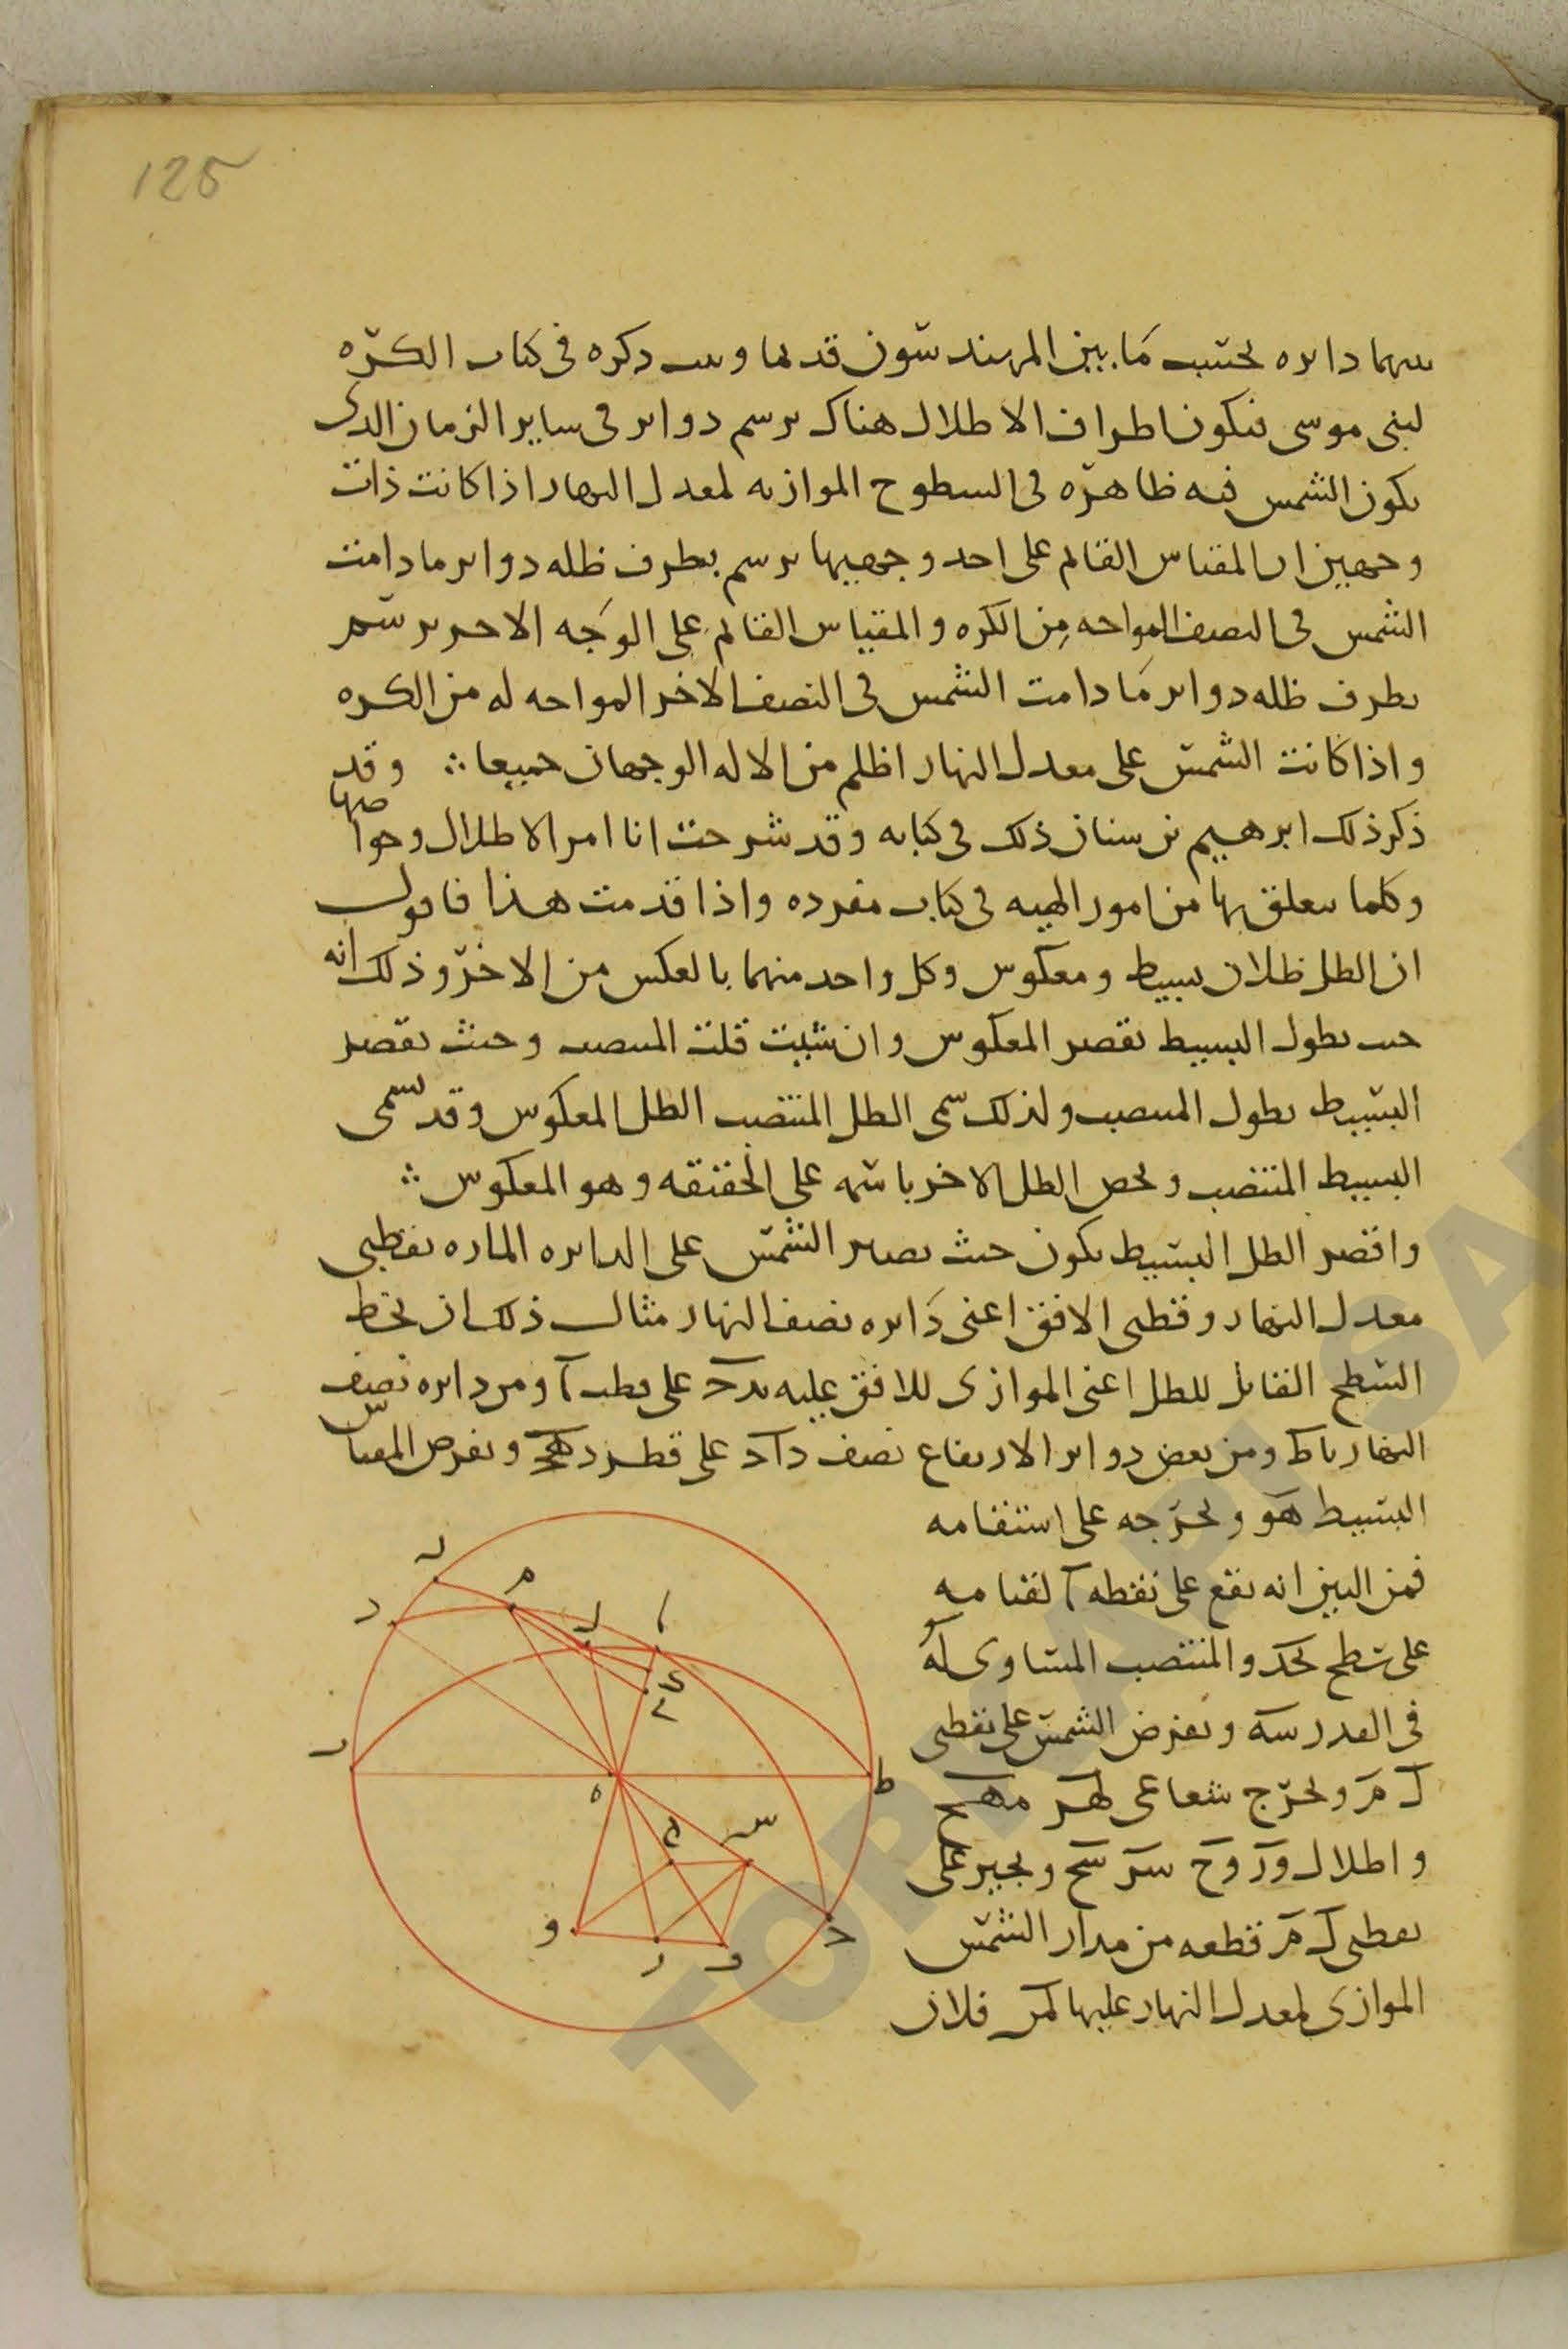 125
دائره بحسب ما بين المهندسون قديما وىىىت ذكره فى كتاب الكره
لبنى موسى فىكون اطراف الاظلال هناك ىرسم دواىر فى ساير الزمان الذى
ىكون الشمس فيه ظاهره فى السطوح الموازيه لمعدل النهار اذا كانت ذات
وجهين اں المقياس القائم على احد وجهيها ىرسم بطرف ظله دواىر ما دامت
الشمس فى النصف المواجه من الكره والمقياس القائم على الوجه الاخر ىرسم
بطرف ظله دواىر ما دامت الشمس فى النصف الاخر المواجه له من الكره
واذا كانت الشمس على معدل النهار اظلم من الاله الوجهان جميعا ∴ وقد
ذكر ذلك ابرهيم بن سنان ذلك فى كتابه وقد شرحت انا امر الاظلال وخواصها
وكلما ىتعلق بها من امور الهيه فى كتاب مفرده واذا قدمت هذا فاقول
ان الظل ظلان بسيط ومعكوس وكل واحد منهما بالعكس من الاخر وذلك انه
حيث يطول البسيط يقصر المعكوس وان شيت قلت المنتصب وحيث يقصر
البسيط يطول المنتصب ولذلك سمى الظل المنتصب الظل المعكوس وقد يسمى
البسيط المنتصب ويخص الظل الاخر باسمه على الحقيقه وهو المعكوس ∴
واقصر الظل البسيط يكون حيث يصير الشمس على الدايره الماره بقطبى
معدل النهار وقطبى الافق اعنى دايره نصف النهار مثال ذلك ان نخط
السطح القابل للظل اعنى الموازى للافق عليه ىدح على قطب آ ومن دايره نصف
النهار ىاط ومن بعض دواير الارتفاع نصف دآد على قطر دهح ونفرض المقياس
البسيط هو ونخرجه على استقامه
فمن البين انه يقع على نقطه آ لقيامه
على سطح ىحد والمنتصب المساوى له
فى القدر سه ونفرض الشمس على نقطى
ل م ونخرج شعاعى لهر مهح
واظلال ور وح سر سح ونجيز على
نقطى ل م قطعه من مدار الشمس
الموازى لمعدل النهار عليها لمں فلان
ں
د
م
ل
ا
ك
ع
ں
ه
ط
ں
س
و
ر
و
د
TOPKAPI SA